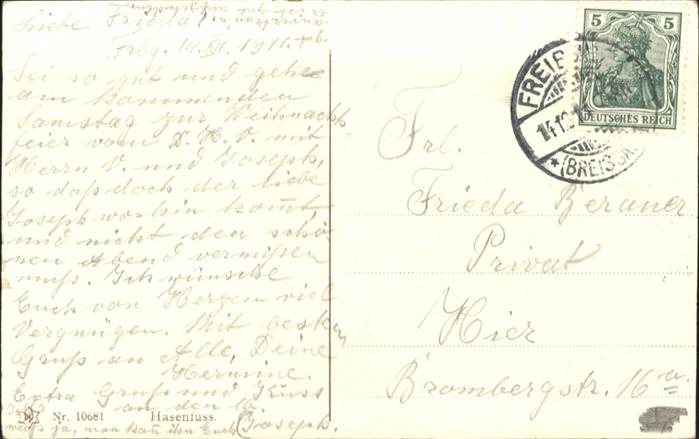 Liebe Frieda!
anvertrauen
er ist gut aufgehoben
Frbg. 14. XII. 1911. gut
Sei so gut und gehe
am kommenden
Samstag zur Weihnachts
feier vom D. H. V. mit
Herrn V. und Joseph,
so daß doch der liebe
Joseph wohin kommt
und nicht den schö-
nen Abend vermißen
muß. Ich wünsche
Euch von Herzen viel
Vergnügen. Mit besten
Gruß an Alle, Deine
Hermine.
Extra Gruß und Kuss
an den lb.
Joseph.
ja, man kann ihn Euch
Nr. 10681 Hasenfuss.
5 5
DEUTSCHES REICH
FREIB
14.12.
(BREISGA
Frl.
Frieda Beraner
Privat
Hier
Brombergstr. 16 a.